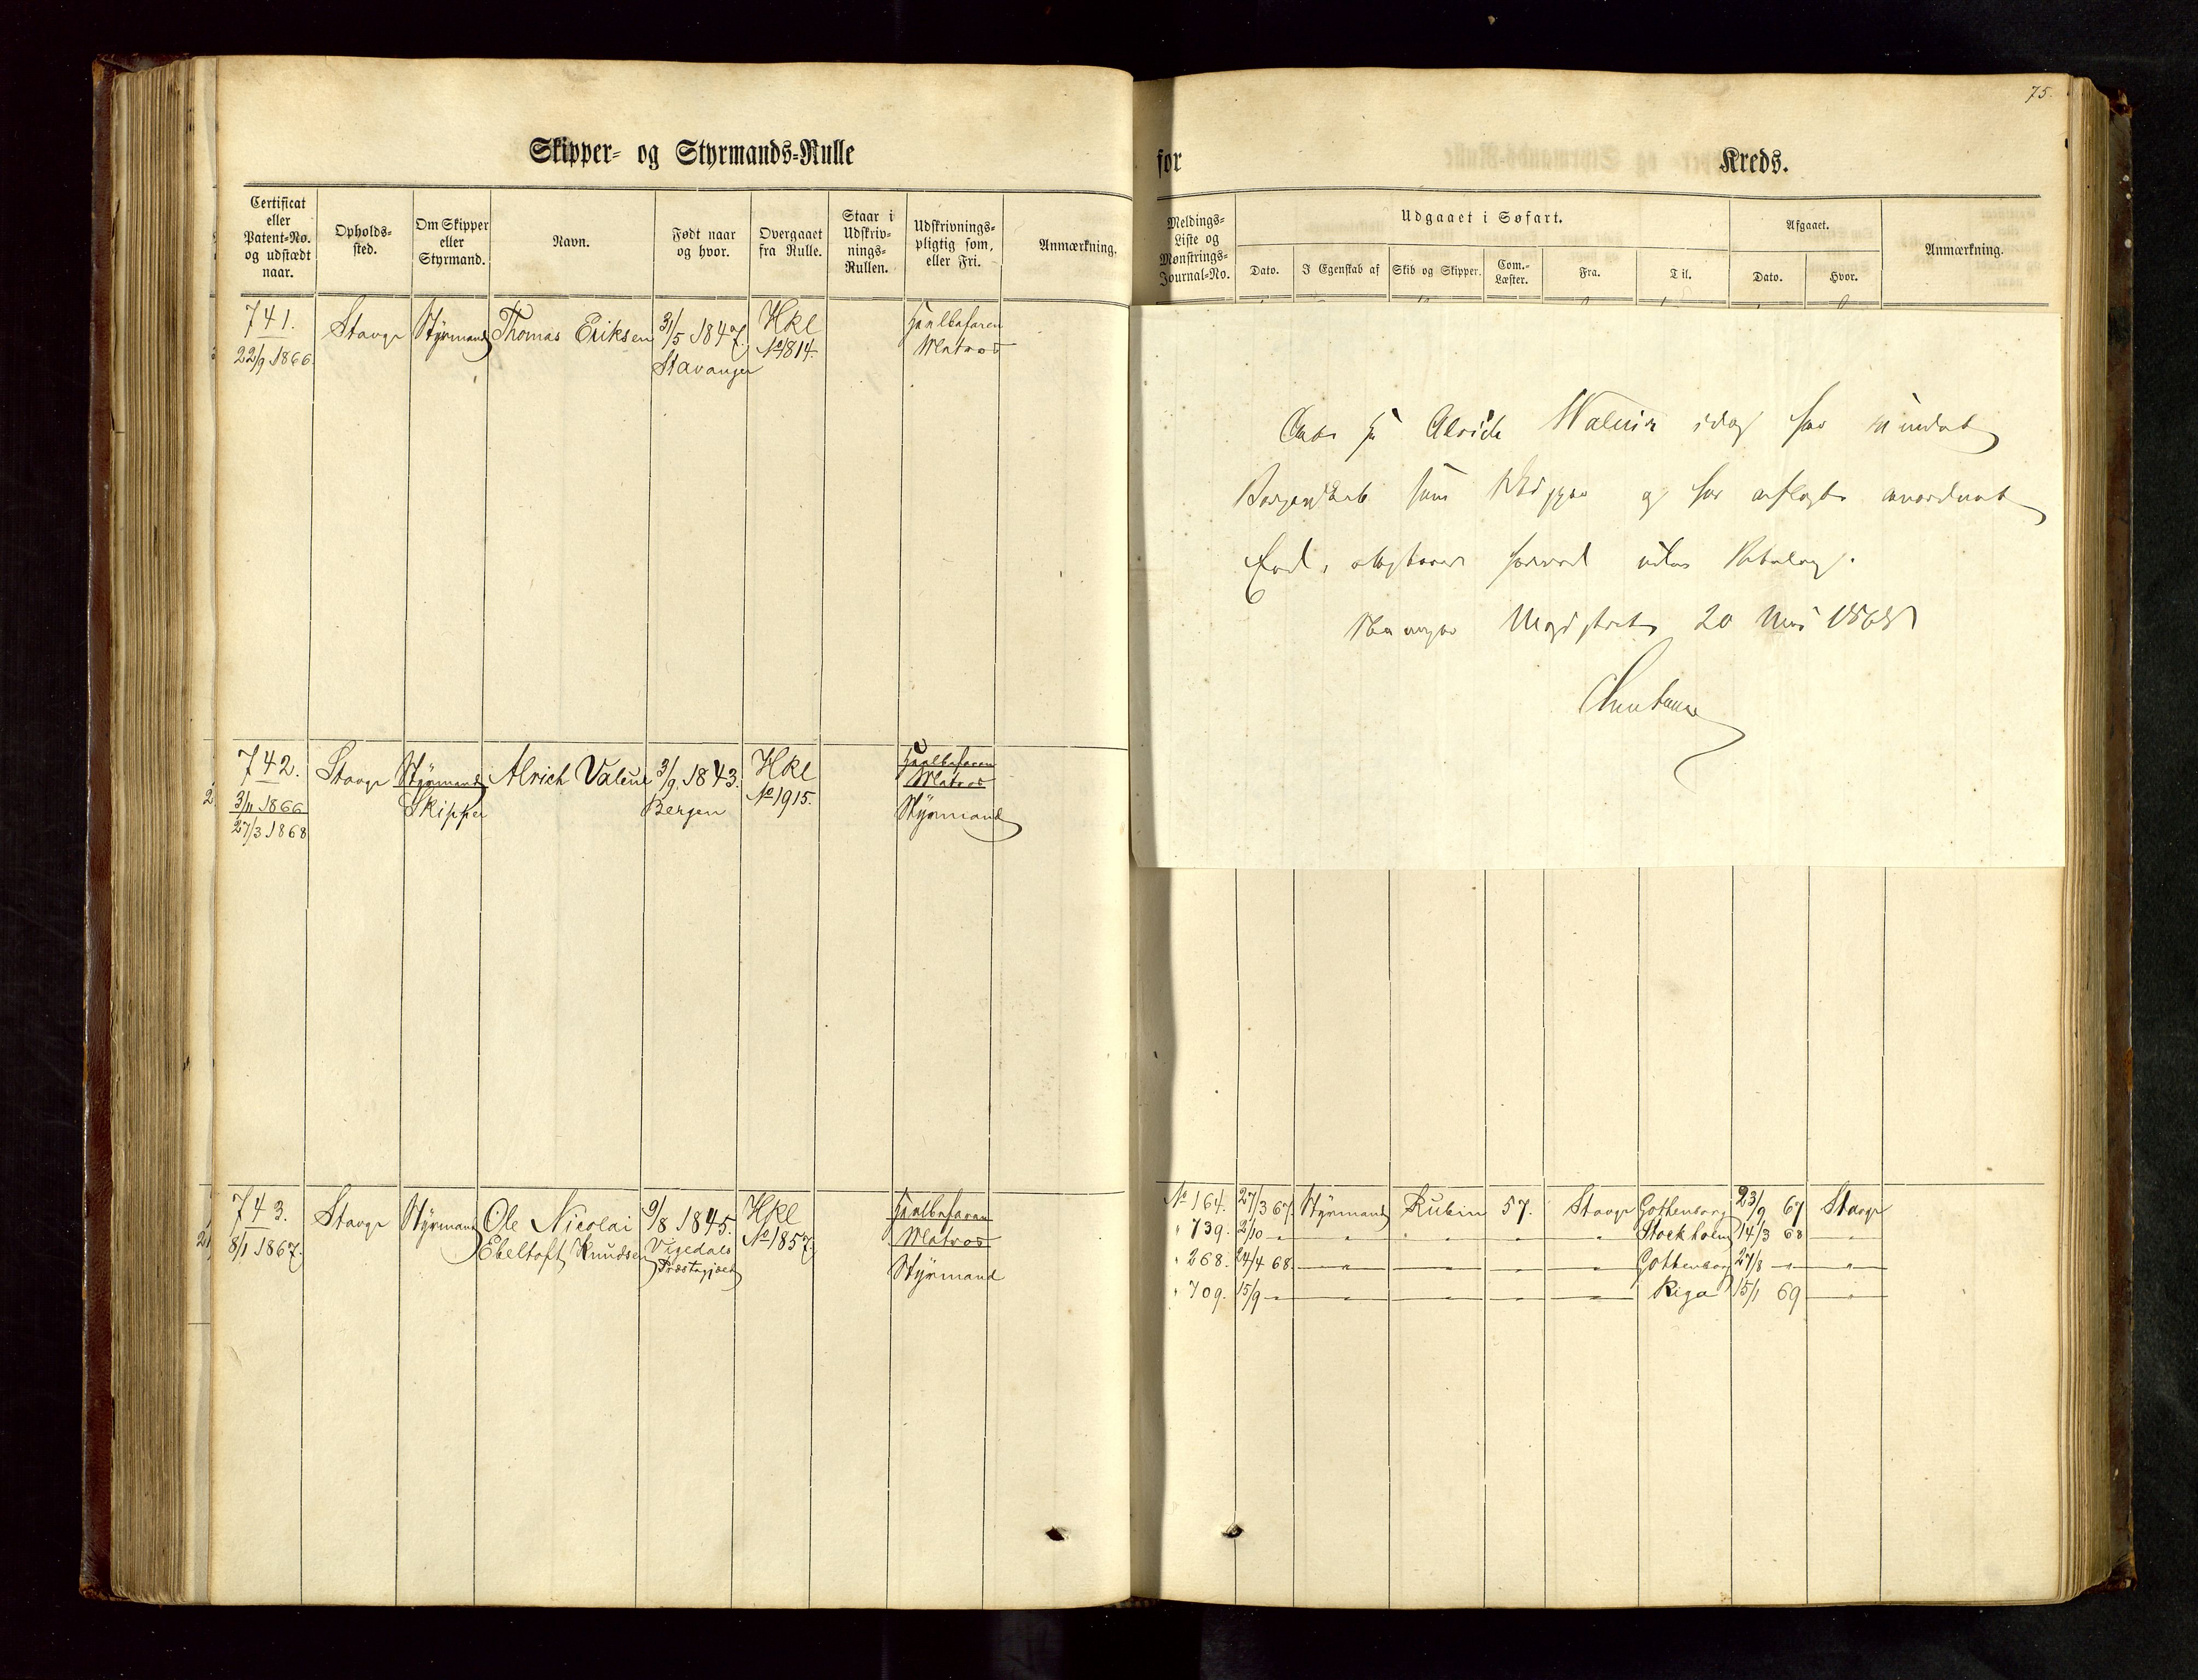 75.
Skipper- og Styrmands-Rulle
for
Kreds.
Certificat eller Patent-No. og udstædt naar.
Opholds-sted.
Om Skipper eller Styrmand.
Navn.
Født naar og hvor.
Overgaaet fra Rulle.
Staar i Udskriv-nings-Rullen.
Udskrivnings-pligtig som, eller Fri.
Anmærkning.
Meldings-Liste og Mønstrings-Journal-No.
Udgaaet i Søfart.
Dato.
I Egenskab af
Skib og Skipper.
Com.-Læster.
Fra.
Til.
Afgaaet.
Dato.
Hvor.
Anmærkning.
741. Stavgr Styrmand Thomas Eriksen 31/5 1847. Hkl Heelbefaren
22/9 1866. Stavanger No 1814. Matros
At Alrich Waleur idag har vundet
Borgerskab som Skipper og har aflagt anordnet
Ed, attesteres herved uden Betaling.
Stavanger Magistrat 20 1868
742. Stavgr Styrmand Alrich Valeur 3/9 1843. Hkl Heelbefaren
3/11 1866 Skipper Bergen No 1915. Matros
27/3 1868 Styrmand
743. Stavgr Styrmand Ole Nicolai 9/8 1845. Hkl Heelbefaren
8/1 1867. Ebeltoft Knudsen Vigedals No 1857. Matros
Præstegjæld Styrmand
No 164. 27/3 67. Styrmand Rubin 57. Stavgr Gottenborg 23/9 67 Stavgr
" 739. 2/10 " " " " " Stockholm 14/3 68 "
" 268. 24/4 68. " " " " Gottenborg 27/8 " "
" 709. 15/9 " " " " " Riga 15/1 69 "